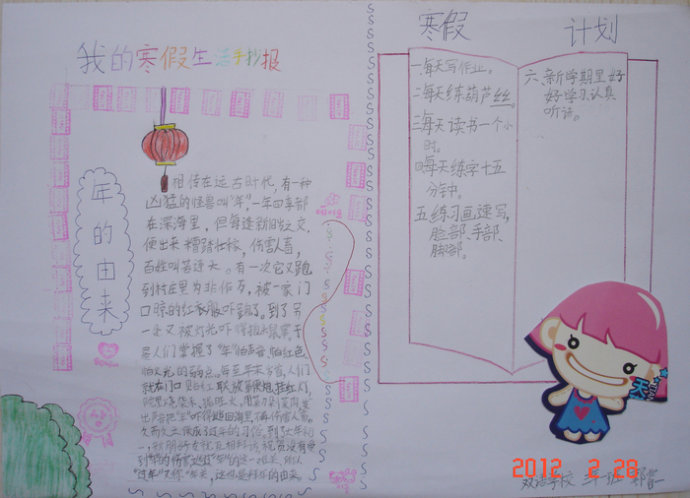 我的寒假生活手抄报
年的由来
相传在远古时代,有一种
凶猛的怪兽叫“年”,一年四季都
在深海里,但每逢新旧之交,
便出来糟踏庄稼,伤害人畜,
百姓叫苦连天。有一次它又跑
到村庄里为非作歹,被一家门
口晾的红衣服吓跑了。到了另
一处又被灯光吓得抱头鼠窜。于
是人们掌握了“年”怕声音,怕红色
怕火光的弱点。每至年末岁首,人们
就在门口贴红联放鞭炮挂红灯,
寒假 计划
一、每天写作业。
二、每天练葫芦丝。
三、每天读书一个小
时。
四、每天练字十五
分钟。
五、练习画速写,
脸部、手部、
脚部。
六、新学期里好
好学习,认真
听讲。
2012 2 28
双语学校 三年 班